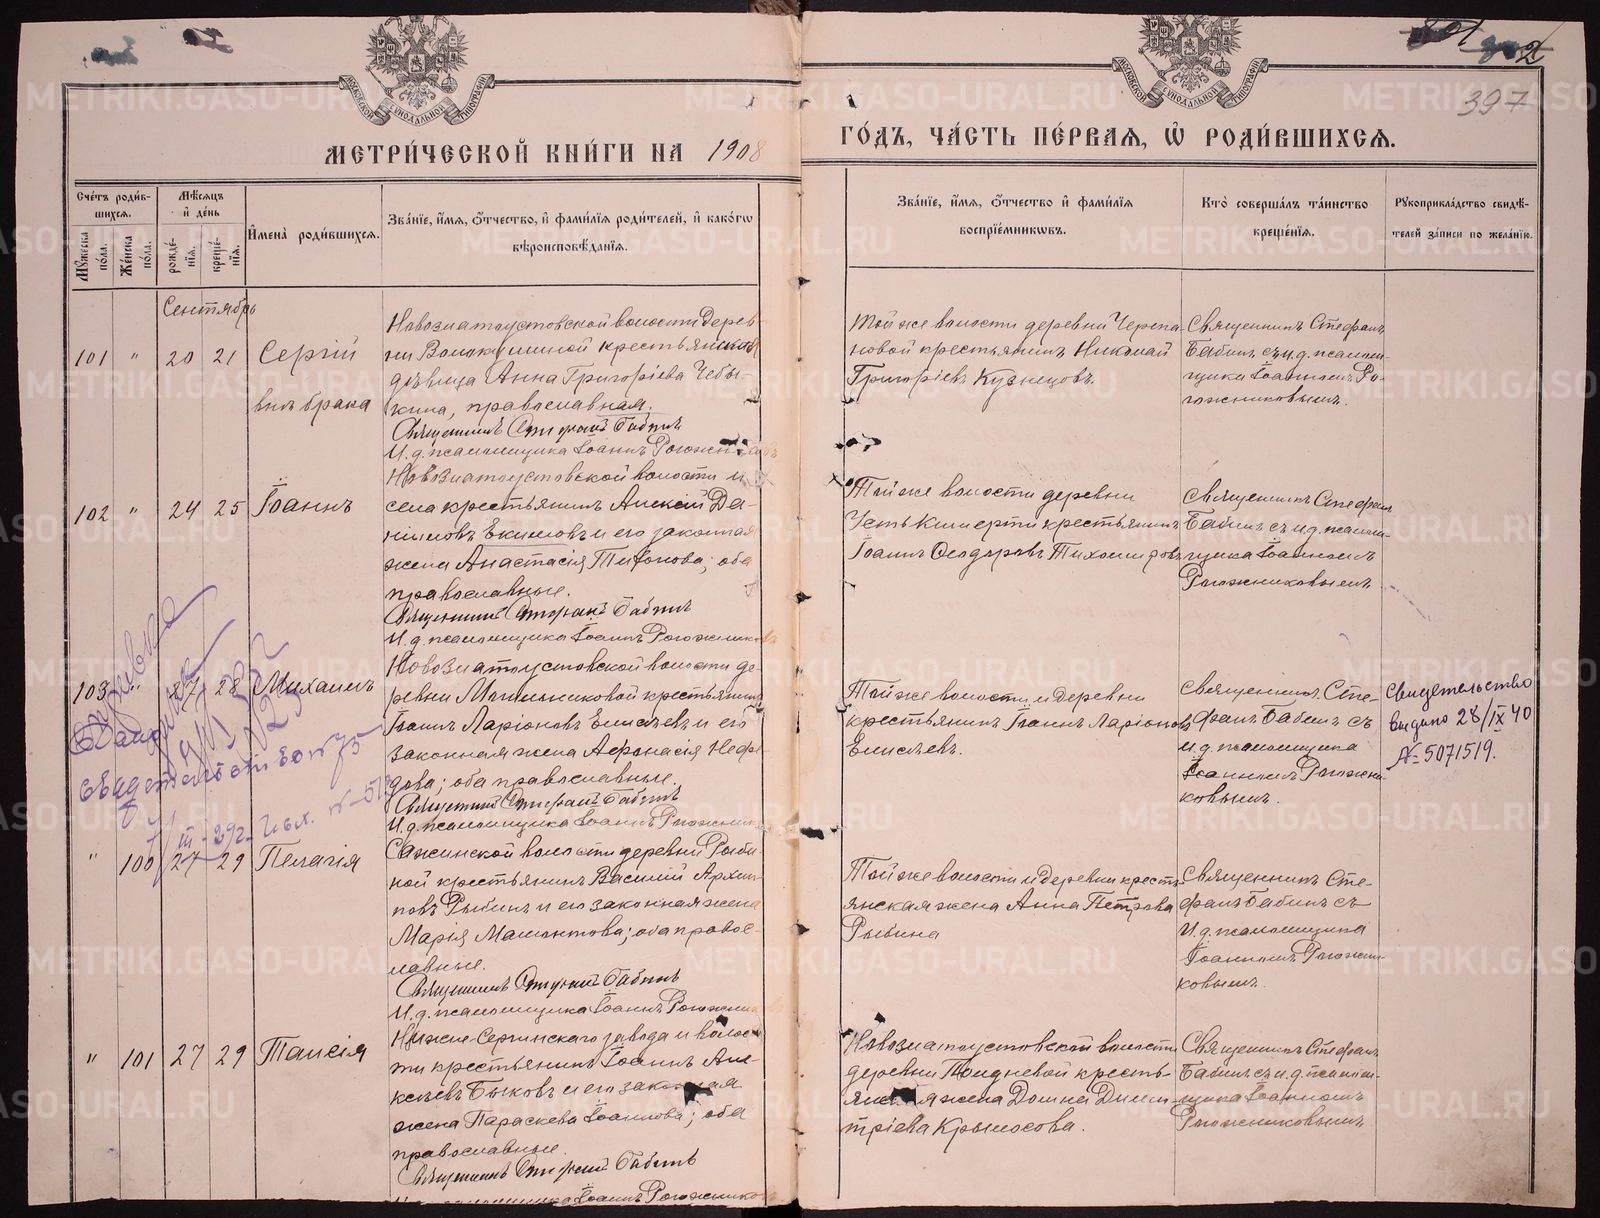 МЕТРИ́ЧЕСКОЙ КНИ́ГИ НА 1908
ГО́ДЪ, ЧА́СТЬ ПЕ́РВАЯ, Ѡ҆ РОДИ́ВШИХСЯ.
397
Сче́тъ роди́в-
шихся.
Му́жеска по́ла.
Же́нска по́ла.
Мѣ́сяцъ
и҆ де́нь
рожде́-
нїя.
креще́-
нїя.
И҆мена̀ роди́вшихся.
Зва́нїе, и҆́мя, ѻ҆́тчество, и҆ фами́лїя роди́телей, и҆ како́гѡ
вѣроисповѣ́данїя.
Зва́нїе, и҆́мя, ѻ҆́тчество и҆ фами́лїя
воспрїе́мникѡвъ.
Кто̀ соверша́лъ та́инство
креще́нїя.
Рукоприкла́дство свидѣ́-
телей за́писи по жела́нїю.
Сентябрь
101 " 20 21 Сергiй
внѣ брака
Новозлатоустовской волости дерев-
ни Волокушиной крестьянская
дѣвица Анна Григорiева Чебы-
кина, православная.
Священникъ Стефанъ Бабинъ
И.д.псаломщика Iоаннъ Рогожниковъ
Той же волости деревни Черепа-
новой крестьянинъ Николай
Григорiевъ Кузнецовъ.
Священникъ Стефанъ
Бабинъ съ и.д. псалом-
щика Iоанномъ Ро-
гожниковымъ.
102 " 24 25 Iоаннъ
Новозлатоустовской волости и
села крестьянинъ Алексiй Да-
нiиловъ Екимовъ и его законная
жена Анастасiя Тифонова; оба
православные.
Священникъ Стефанъ Бабинъ
И.д.псаломщика Iоаннъ Рогожников
Той же волости деревни
Усть Кишерти крестьянинъ
Iоаннъ Ѳеодоровъ Тихомировъ
Священникъ Стефанъ
Бабинъ съ и.д. псалом-
щика Iоанномъ
Рогожниковымъ
103 " 27 28 Михаилъ
Новозлатоустовской волости де-
ревни Мельниковой крестьянинъ
Iоаннъ Ларiоновъ Елисѣевъ и его
законная жена Аѳанасiя Неѳе-
дова; оба православные.
Священникъ Стефанъ Бабинъ
И.д.псаломщика Iоаннъ Рогожник
Той же волости и деревни
крестьянинъ Iоаннъ Ларiоновъ
Елисѣевъ.
Священникъ Сте-
фанъ Бабинъ съ
и.д. псаломщика
Iоанномъ Рогожни-
ковымъ.
Свидетельство
выдано 28/IX 40
№ 5071519.
" 100 27 29 Пелагiя
Сажинской волости деревни Рыби-
ной крестьянинъ Василiй Архип-
повъ Рыбинъ и его законная жена
Марiя Мамонтова; оба правос-
лавные.
Священникъ Стефанъ Бабинъ
И.д.псаломщика Iоаннъ Рогожник
Той же волости и деревни кресть-
янская жена Анна Петрова
Рыбина
Священникъ Сте-
фанъ Бабинъ съ
и.д. псаломщика
Iоанномъ Рогожни-
ковымъ.
" 101 27 29 Таисiя
Нижне-Сергинскаго завода и волос-
ти крестьянинъ Iоаннъ Але-
ксѣевъ Быковъ и его законная
жена Параскева Iоаннова; оба
православные.
Священникъ Стефанъ Бабинъ
Iоаннъ Рогожников
Новозлатоустовской волости
деревни Полдневой кресть-
янская жена Домна Дими-
трiева Крылосова.
Священникъ Стефанъ
Бабинъ съ и.д. псалом-
щика Iоанномъ
Рогожниковымъ